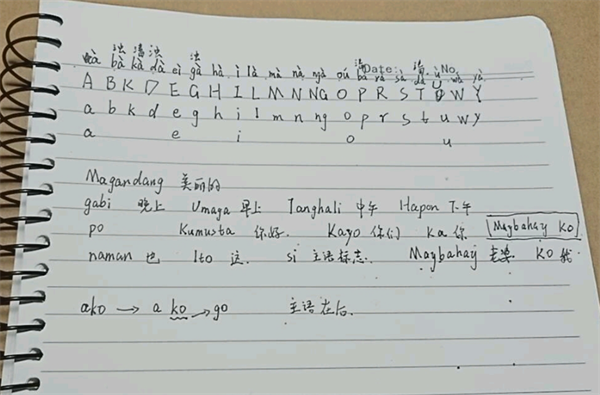 浊 清 浊 浊 清 Date: 清 No.
bà kà dà èi gà hà ì là mà nà ngà òú pà rà sà tà ù wà yà
A B K D E G H I L M N NG O P R S T U W Y
a b k d e g h i l m n ng o p r s t u w y
a e i o u
Magandang 美丽的
gabi 晚上 Umaga 早上 Tanghali 中午 Hapon 下午
po Kumusta 你好. Kayo 你们 Ka 你 Maybahay ko
naman 也 Ito 这. si 主语标志. Maybahay 老婆 ko 我
ako → a ko → go 主语在后.